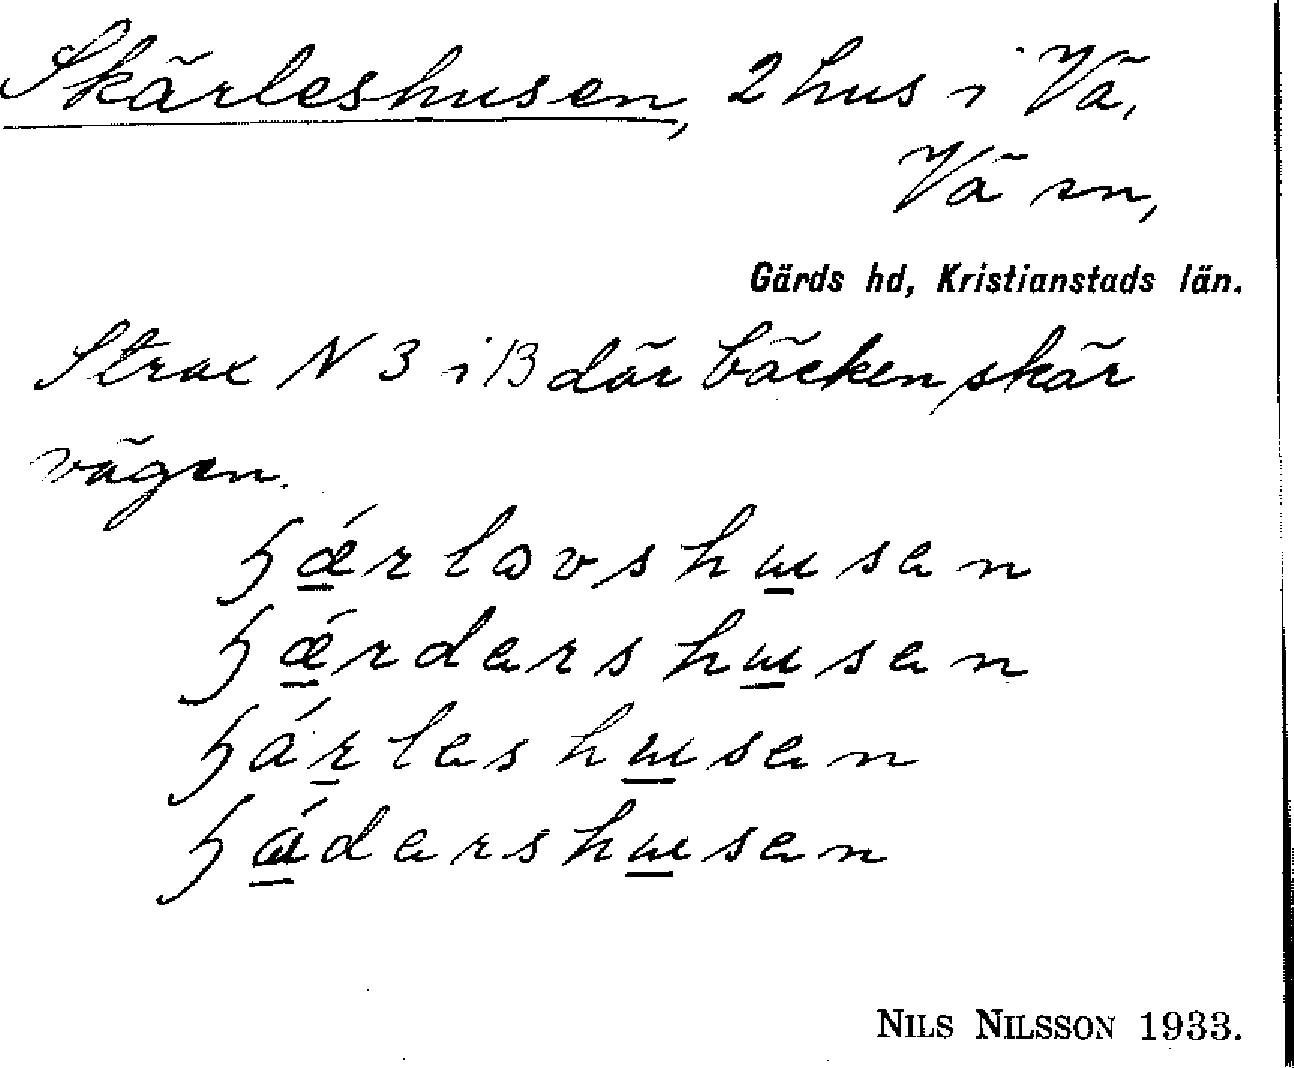 Skärleshusen, 2 hus i Vä,
Vä sn,
Gärds hd, Kristianstads län.
Strax N 3 i 13 där bäcken skär
vägen.
ɧǽrlɔvshɯsen
ɧǽrdershɯsen
ɧárleshɯsen
ɧádershɯsen
NILS NILSSON 1933.